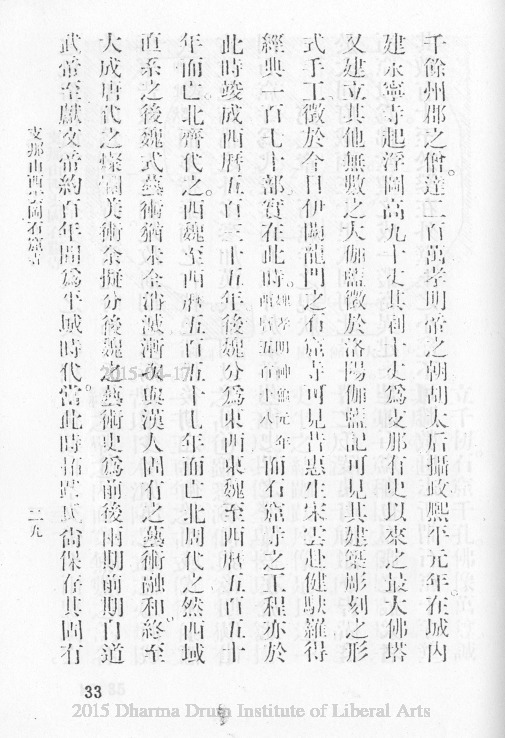 千餘州郡之僧。達二百萬孝明帝之朝胡太后攝政熙平元年。在城內
建永寧寺起浮圖高九十丈其刹十丈爲支那有史以來之最大佛塔
又建立其他無數之大伽藍徵於洛陽伽藍記可見其建築彫刻之形
式手工。徵於今日伊闕龍門之石窟寺可見昔惠生宋雲赴健馱羅得
經典一百七十部。實在此時。魏孝明神龜元年西曆五百十八而石窟寺之工程亦於
此時竣成西曆五百三十五年後魏分爲東西東魏至西曆五百五十
年而亡北齊代之。西魏至西曆五百五十七年而亡北周代之然西域
直系之後魏式藝術猶未全消滅漸與漢人固有之藝術融和。終至
大成唐代之燦爛美術余擬分後魏之藝術史爲前後兩期前期自道
武帝至獻文帝約百年間爲平城時代。當此時拓跋氏尙保存其固有
支那山西雲岡石窟寺
二九
33
2015-04-17
2015 Dharma Drum Institute of Liberal Arts